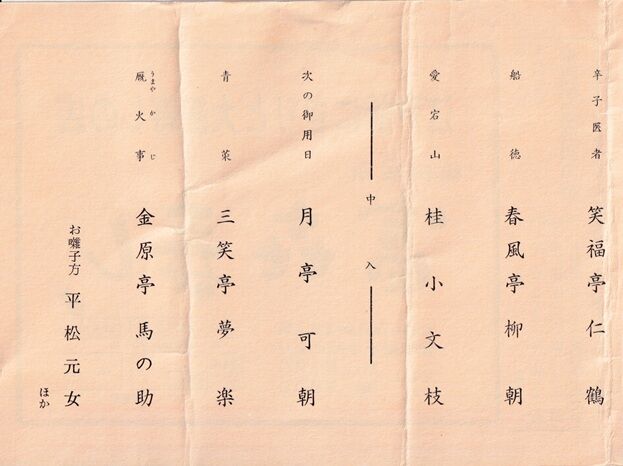 辛子医者 笑福亭仁鶴
船徳 春風亭柳朝
愛宕山 桂小文枝
中入
次の御用日 月亭可朝
青菜 三笑亭夢楽
厩火事 金原亭馬の助
うまやかじ
お囃子方 平松元女
ほか